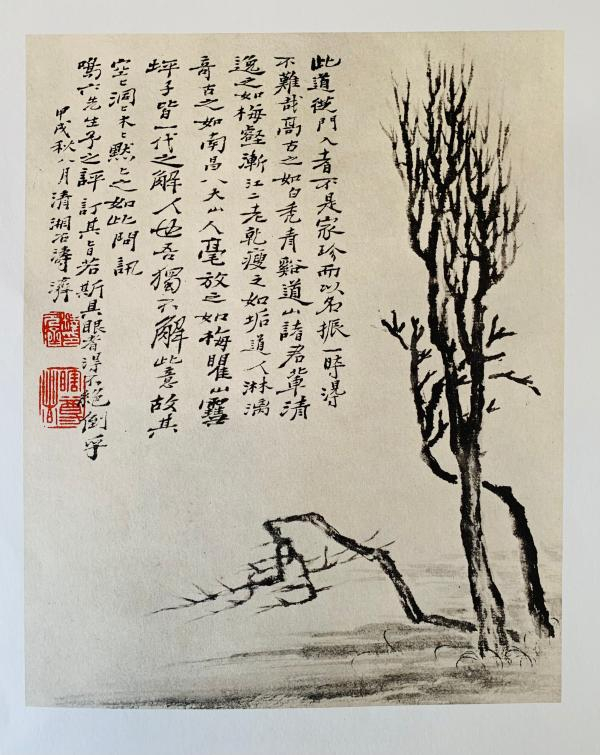 此道從門入者不是家珍而以名振一時得
不難哉高古之如白禿青谿道山諸君輩清
逸之如梅壑漸江二老乾瘦之如垢道人淋漓
奇古之如南昌八大山人毫放之如梅瞿山雪
坪子皆一代之解人也吾獨不解此意故其
空〻洞〻木〻默〻之如此問訊
鳴六先生予之評訂其旨若斯具眼者得不絕倒乎
甲戌秋八月清湘石濤濟